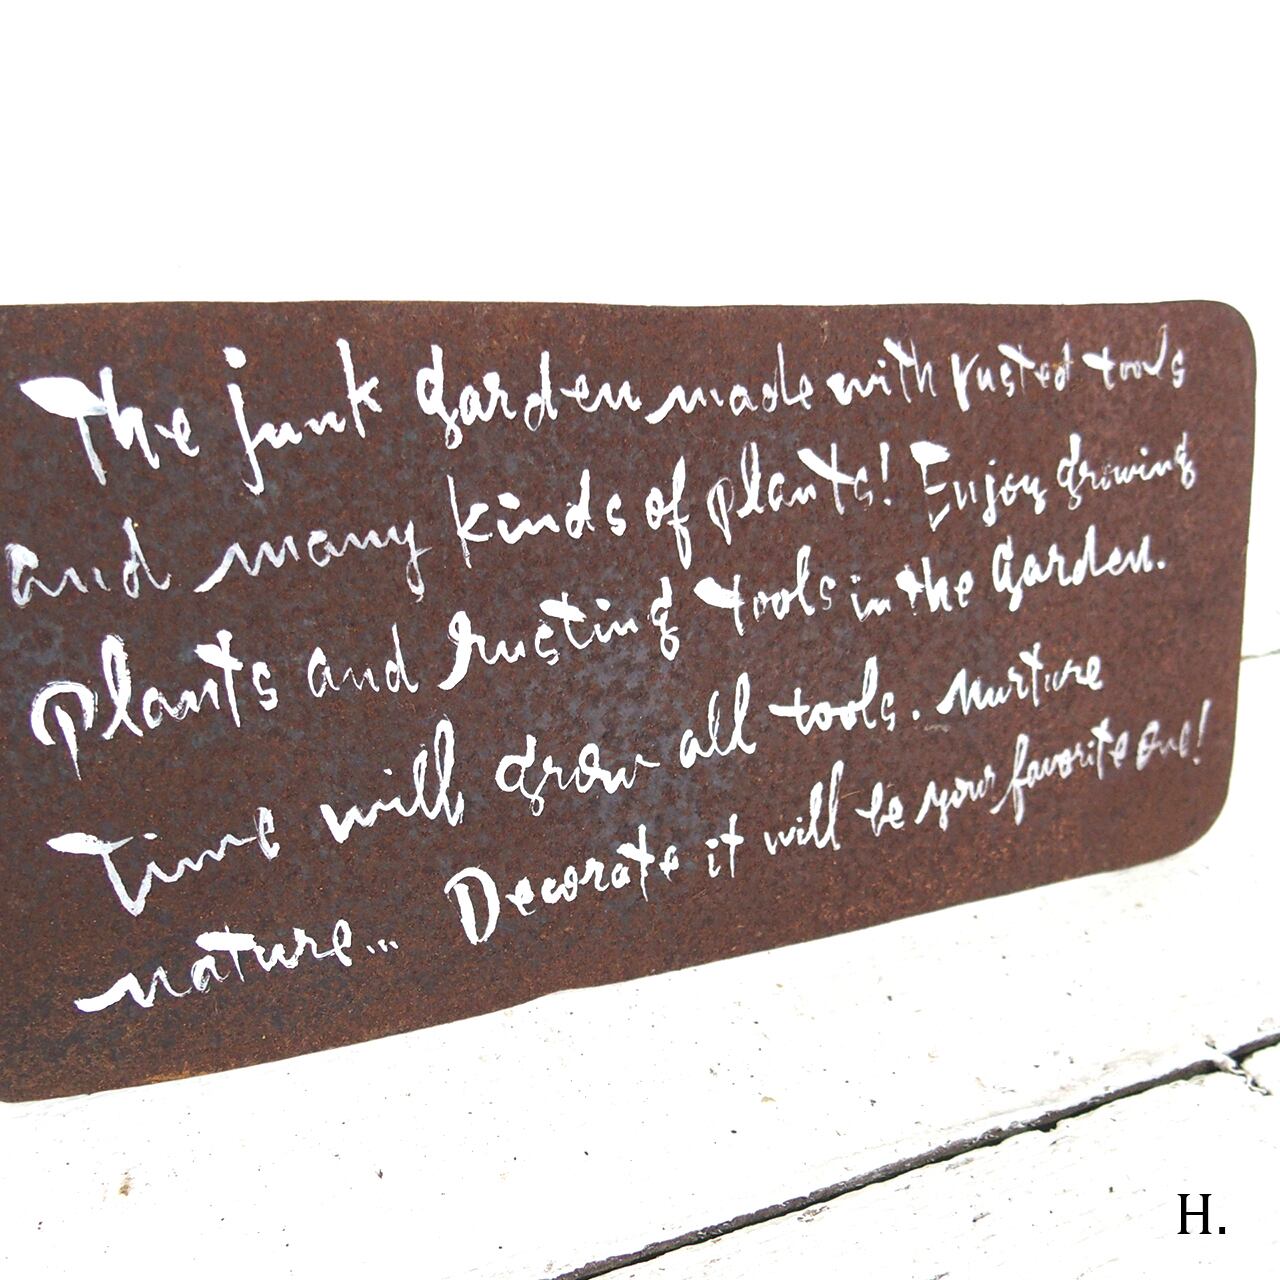 The junk garden made with rusted tools
and many kinds of plants! Enjoy growing
plants and rusting tools in the garden.
Time will grow all tools. Nurture
nature... Decorate it will be your favorite one!
H.